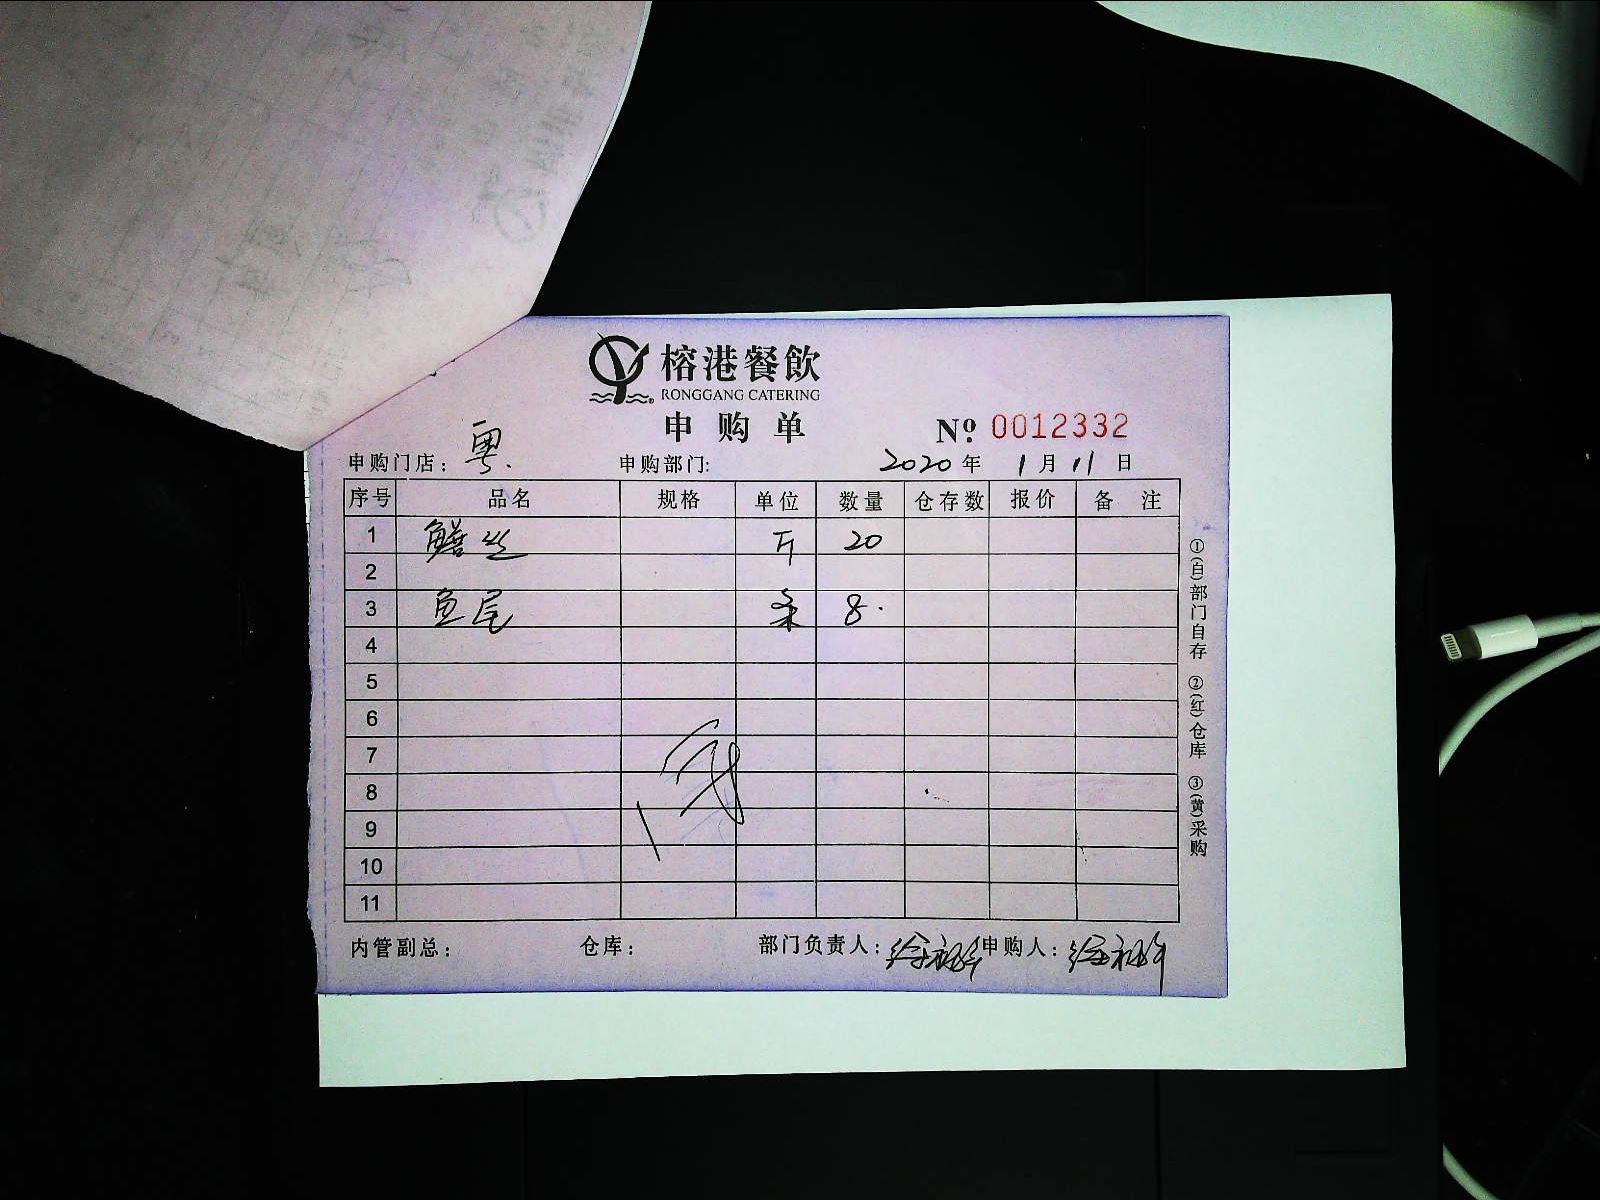 榕港餐飲
RONGGANG CATERING
申购单
Nº: 0012332
申购门店: 粤. 申购部门: 2020年 1月 11日
序号 品名 规格 单位 数量 仓存数 报价 备注
1 鳝丝 斤 20
2
3 鱼尾 条 8.
4
5
6
7
8
9
10
11
内管副总: 仓库: 部门负责人: 申购人:
①(自)部门自存 ②(红)仓库 ③(黄)采购